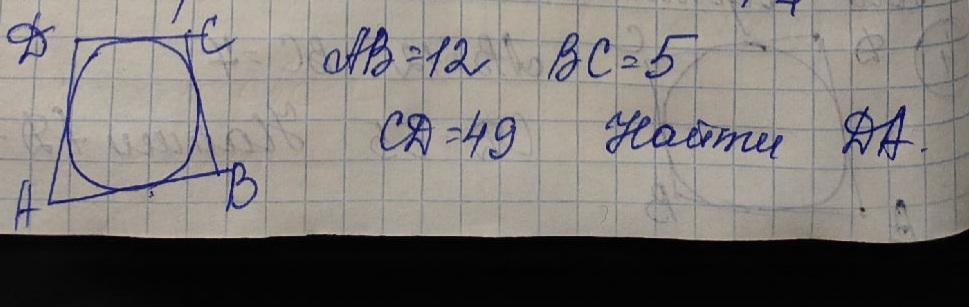 D C AB=12 BC=5
CD=49 Найти DA.
A B